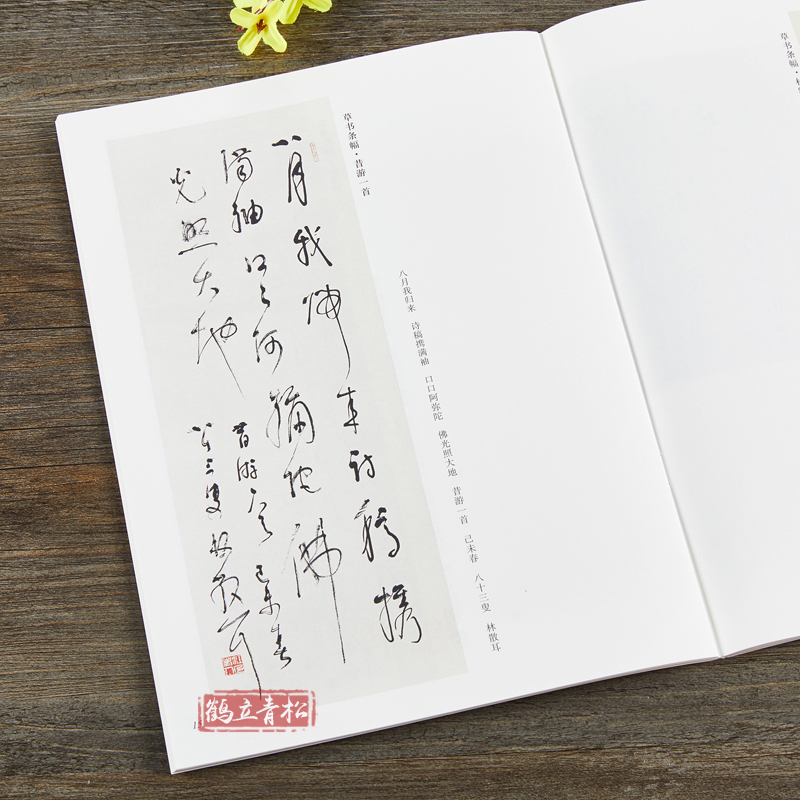 八月我归来诗稿携
满袖口口阿弥陀佛
光照大地
昔游一首 己未春
八十三叟 林散耳
草书条幅·昔游一首
八月我归来 诗稿携满袖 口口阿弥陀 佛光照大地 昔游一首 己未春 八十三叟 林散耳
草书条幅·
鹤立青松